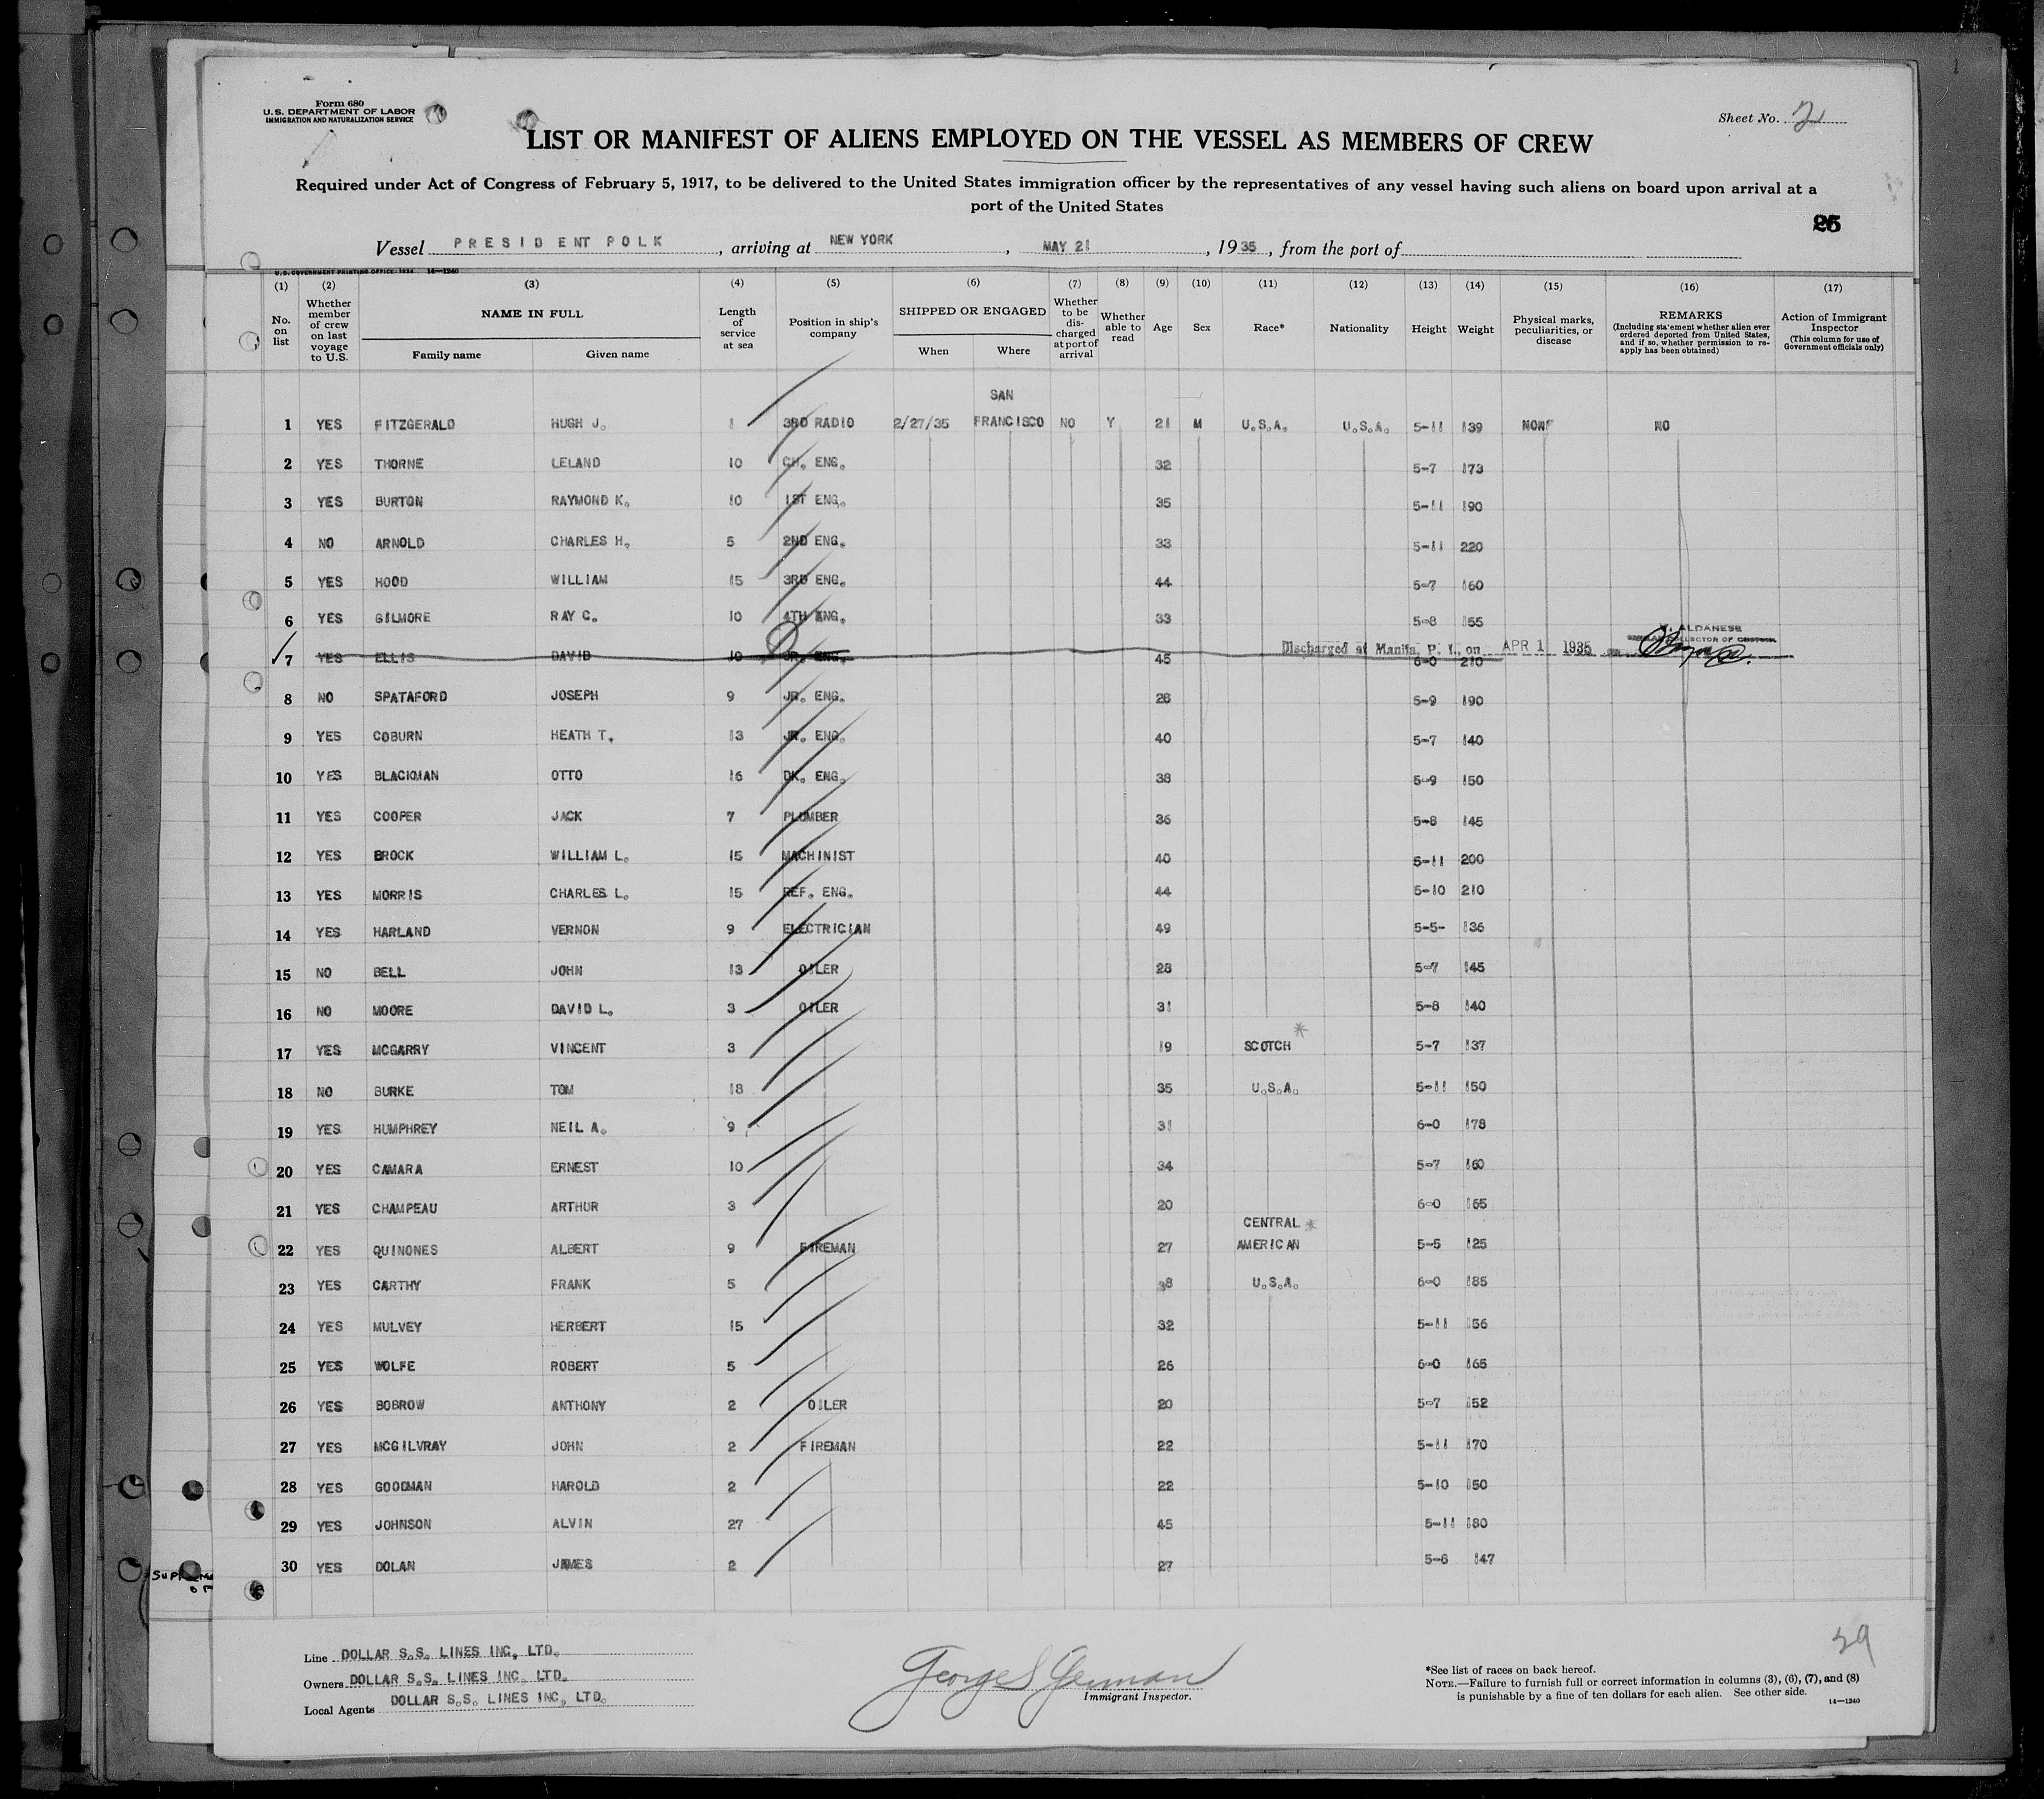 Form 680
U.S. DEPARTMENT OF LABOR
IMMIGRATION AND NATURALIZATION SERVICE
Sheet No. 2
LIST OR MANIFEST OF ALIENS EMPLOYED ON THE VESSEL AS MEMBERS OF CREW
Required under Act of Congress of February 5, 1917, to be delivered to the United States immigration officer by the representatives of any vessel having such aliens on board upon arrival at a
port of the United States
Vessel PRESIDENT POLK, arriving at NEW YORK, MAY 21, 1935, from the port of
U.S. GOVERNMENT PRINTING OFFICE: 1934 14—1240
(1) (2) (3) (4) (5) (6) (7) (8) (9) (10) (11) (12) (13) (14) (15) (16) (17)
No. on list
Whether member of crew on last voyage to U.S.
NAME IN FULL
Family name Given name
Length of service at sea
Position in ship's company
SHIPPED OR ENGAGED
When Where
Whether to be discharged at port of arrival
Whether able to read
Age
Sex
Race*
Nationality
Height
Weight
Physical marks, peculiarities, or disease
REMARKS
(Including statement whether alien ever ordered deported from United States, and if so, whether permission to reapply has been obtained)
Action of Immigrant Inspector
(This column for use of Government officials only)
SAN
1 YES FITZGERALD HUGH J. 1 3RD RADIO 2/27/35 FRANCISCO NO Y 21 M U.S.A. U.S.A. 5-11 139 NONE NO
2 YES THORNE LELAND 10 CH. ENG. 32 5-7 173
3 YES BURTON RAYMOND K. 10 1ST ENG. 35 5-11 190
4 NO ARNOLD CHARLES H. 5 2ND ENG. 33 5-11 220
5 YES HOOD WILLIAM 15 3RD ENG. 44 5-7 160
6 YES GILMORE RAY C. 10 4TH ENG. 33 5-8 155
ALDANESE
COLLECTOR OF CUSTOMS
7 YES ELLIS DAVID 10 JR. ENG. 45 Discharged at Manila, P. I., on APR 1 1935 6-0 210
8 NO SPATAFORD JOSEPH 9 JR. ENG. 26 5-9 190
9 YES COBURN HEATH T. 13 JR. ENG. 40 5-7 140
10 YES BLACKMAN OTTO 16 DK. ENG. 38 5-9 150
11 YES COOPER JACK 7 PLUMBER 36 5-8 145
12 YES BROCK WILLIAM L. 15 MACHINIST 40 5-11 200
13 YES MORRIS CHARLES L. 15 REF. ENG. 44 5-10 210
14 YES HARLAND VERNON 9 ELECTRICIAN 49 5-5- 136
15 NO BELL JOHN 13 OILER 28 5-7 145
16 NO MOORE DAVID L. 3 OILER 31 5-8 140
17 YES MCGARRY VINCENT 3 19 SCOTCH * 5-7 137
18 NO BURKE TOM 18 35 U.S.A. 5-11 150
19 YES HUMPHREY NEIL A. 9 31 6-0 178
20 YES CAMARA ERNEST 10 34 5-7 160
21 YES CHAMPEAU ARTHUR 3 20 6-0 165
CENTRAL *
22 YES QUINONES ALBERT 9 FIREMAN 27 AMERICAN 5-5 125
23 YES CARTHY FRANK 5 38 U.S.A. 6-0 185
24 YES MULVEY HERBERT 15 32 5-11 156
25 YES WOLFE ROBERT 5 26 6-0 165
26 YES BOBROW ANTHONY 2 OILER 20 5-7 152
27 YES MCGILVRAY JOHN 2 FIREMAN 22 5-11 170
28 YES GOODMAN HAROLD 2 22 5-10 150
29 YES JOHNSON ALVIN 27 45 5-11 180
30 YES DOLAN JAMES 2 27 5-6 147
39
Line DOLLAR S.S. LINES INC. LTD.
Owners DOLLAR S.S. LINES INC. LTD.
Local Agents DOLLAR S.S. LINES INC. LTD.
George S German
Immigrant Inspector.
*See list of races on back hereof.
NOTE.—Failure to furnish full or correct information in columns (3), (6), (7), and (8)
is punishable by a fine of ten dollars for each alien. See other side.
14—1240